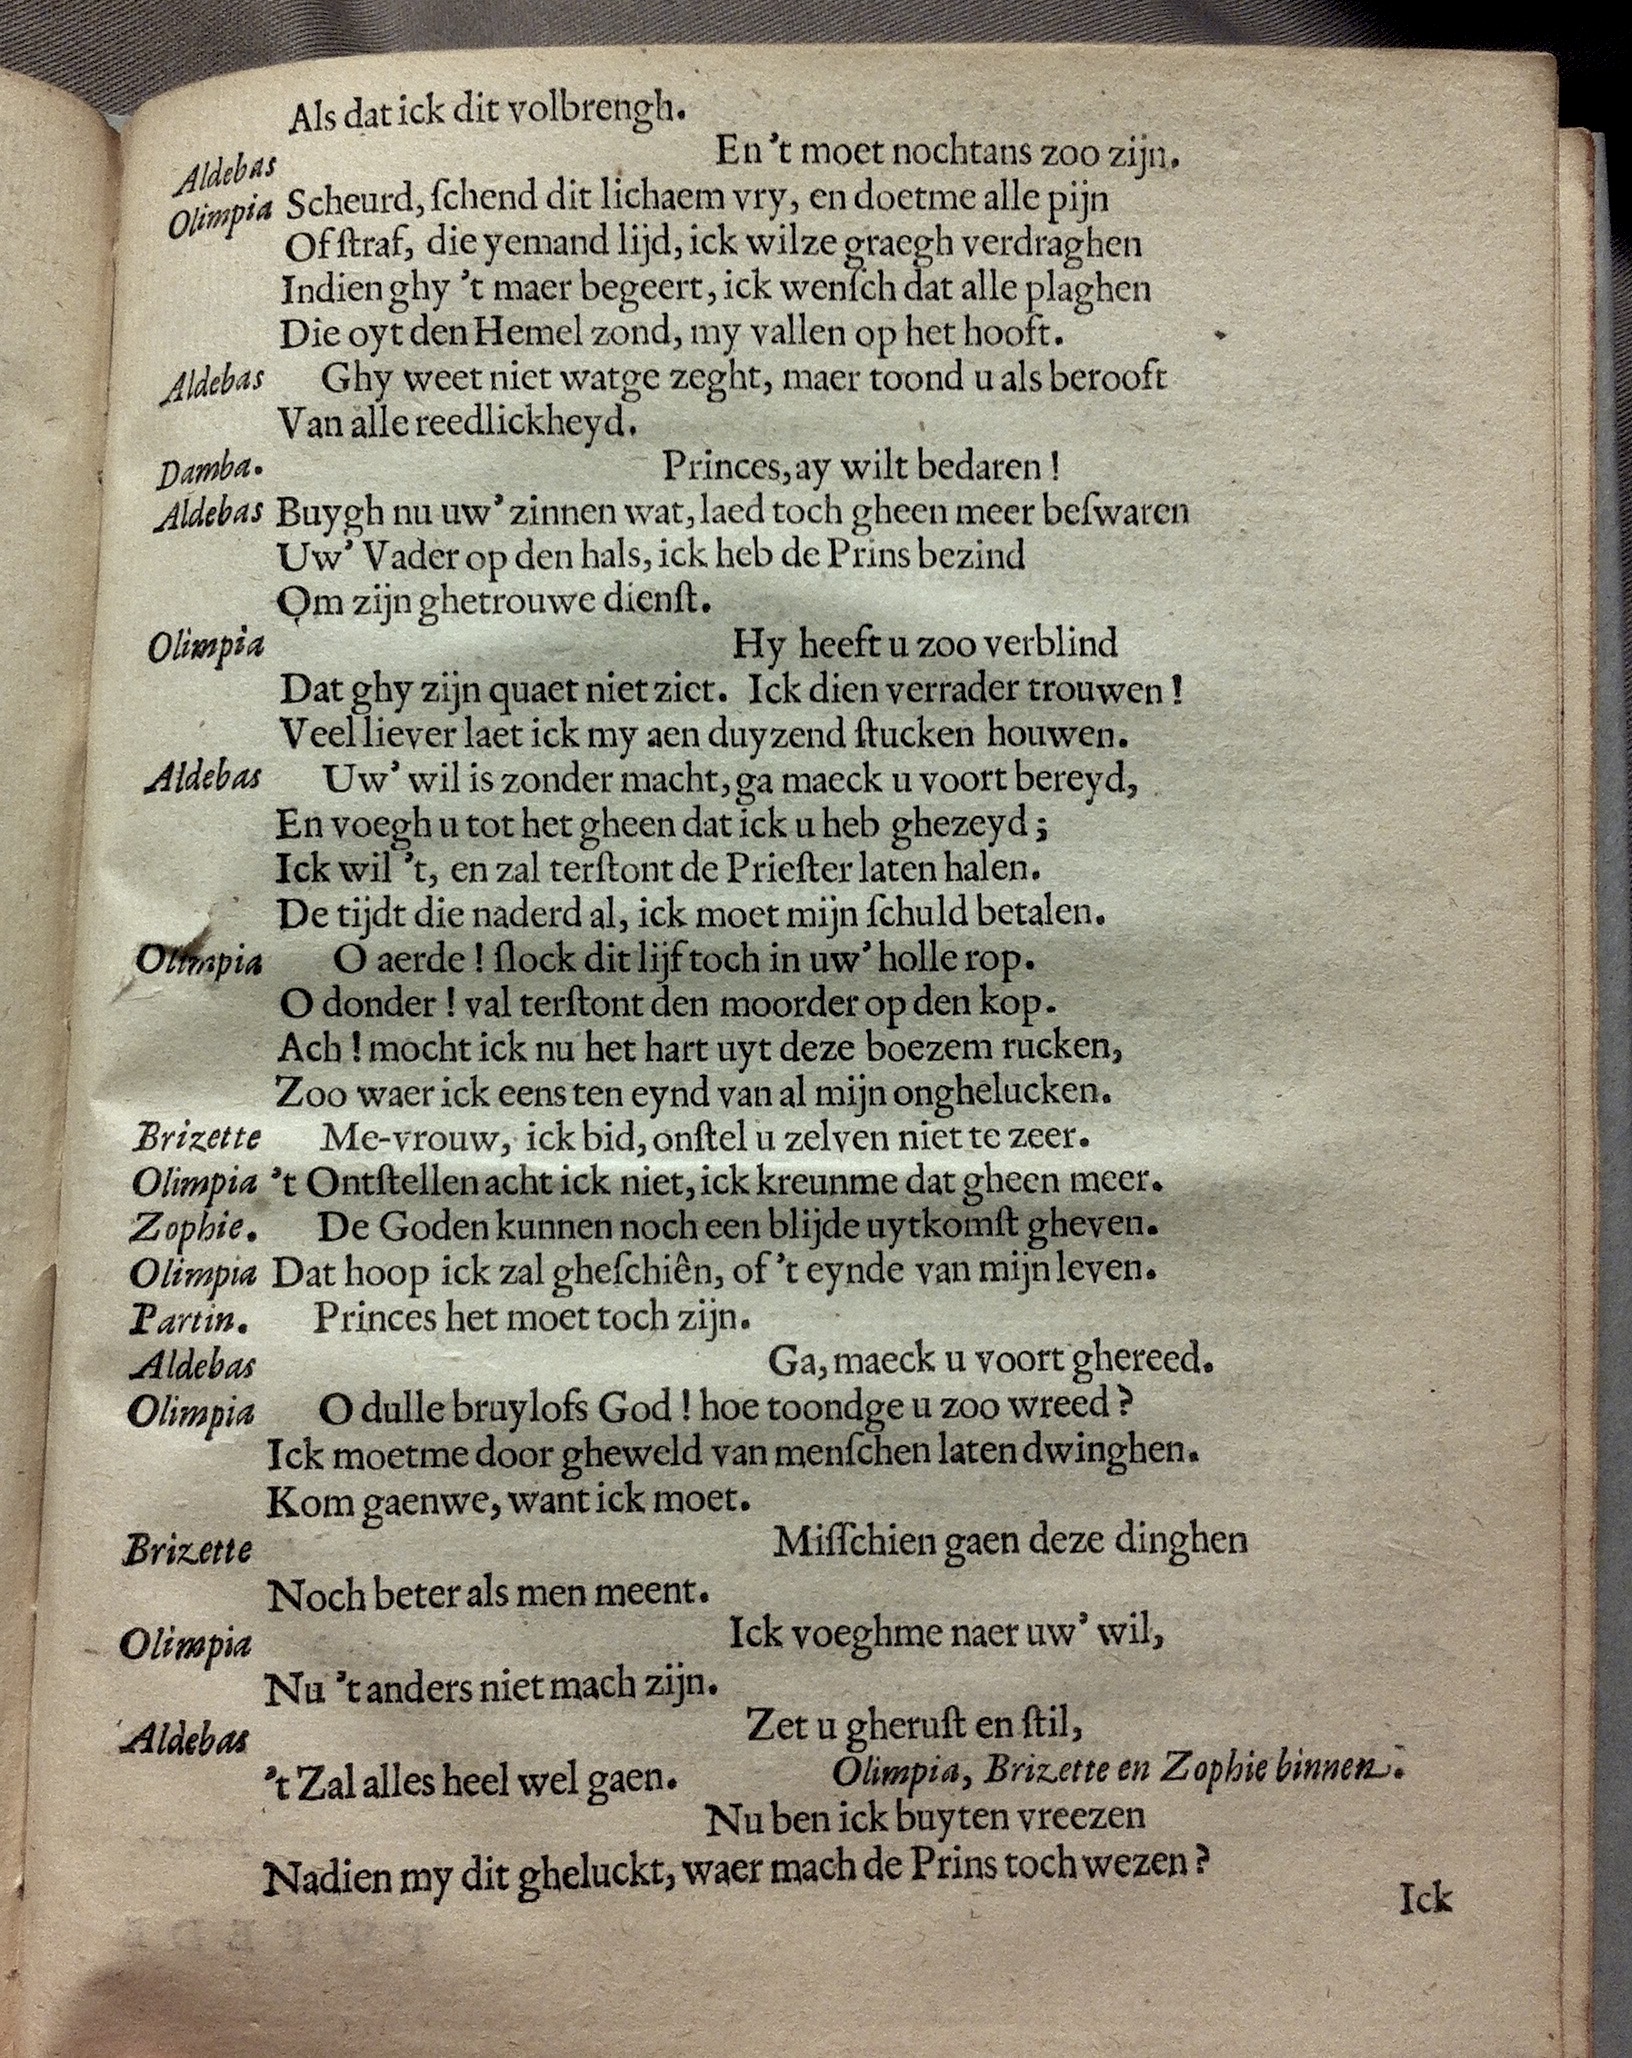 Als dat ick dit volbrengh.
Aldebas En 't moet nochtans zoo zijn.
Olimpia Scheurd, ſchend dit lichaem vry, en doetme alle pijn
Of ſtraf, die yemand lijd, ick wilze graegh verdraghen
Indien ghy 't maer begeert, ick wenſch dat alle plaghen
Die oyt den Hemel zond, my vallen op het hooft.
Aldebas Ghy weet niet watge zeght, maer toond u als berooft
Van alle reedlickheyd.
Damba. Princes, ay wilt bedaren!
Aldebas Buygh nu uw' zinnen wat, laed toch gheen meer beſwaren
Uw' Vader op den hals, ick heb de Prins bezind
Om zijn ghetrouwe dienſt.
Olimpia Hy heeft u zoo verblind
Dat ghy zijn quaet niet ziet. Ick dien verrader trouwen!
Veel liever laet ick my aen duyzend ſtucken houwen.
Aldebas Uw' wil is zonder macht, ga maeck u voort bereyd,
En voegh u tot het gheen dat ick u heb ghezeyd;
Ick wil 't, en zal terſtont de Prieſter laten halen.
De tijdt die naderd al, ick moet mijn ſchuld betalen.
Olimpia O aerde! ſlock dit lijf toch in uw' holle rop.
O donder! val terſtont den moorder op den kop.
Ach! mocht ick nu het hart uyt deze boezem rucken,
Zoo waer ick eens ten eynd van al mijn onghelucken.
Brizette Me-vrouw, ick bid, onſtel u zelven niet te zeer.
Olimpia 't Ontſtellen acht ick niet, ick kreunme dat gheen meer.
Zophie. De Goden kunnen noch een blijde uytkomſt gheven.
Olimpia Dat hoop ick zal gheſchiên, of 't eynde van mijn leven.
Partin. Princes het moet toch zijn.
Aldebas Ga, maeck u voort ghereed.
Olimpia O dulle bruylofs God! hoe toondge u zoo wreed?
Ick moetme door gheweld van menſchen laten dwinghen.
Kom gaenwe, want ick moet.
Brizette Miſſchien gaen deze dinghen
Noch beter als men meent.
Olimpia Ick voeghme naer uw' wil,
Nu 't anders niet mach zijn.
Aldebas Zet u gheruſt en ſtil,
't Zal alles heel wel gaen. Olimpia, Brizette en Zophie binnen.
Nu ben ick buyten vreezen
Nadien my dit gheluckt, waer mach de Prins toch wezen?
Ick